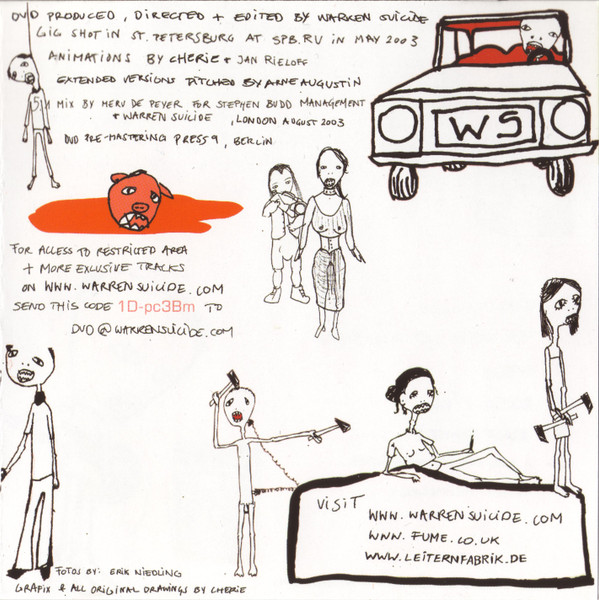 DVD PRODUCED, DIRECTED + EDITED BY WARREN SUICIDE
GIG SHOT IN ST. PETERSBURG AT SPB.RU IN MAY 2003
ANIMATIONS BY CHERIE + JAN RIELOFF
EXTENDED VERSIONS PITCHED BY ARNE AUGUSTIN
MIX BY HERV DE PEYER FOR STEPHEN BUDD MANAGEMENT
+ WARREN SUICIDE, LONDON AUGUST 2003
DVD PRE-MASTERING PRESS 9, BERLIN
WS
FOR ACCESS TO RESTRICTED AREA
+ MORE EXCLUSIVE TRACKS
ON WWW.WARRENSUICIDE.COM
SEND THIS CODE 1D-pc3Bm TO
DVD@WARRENSUICIDE.COM
VISIT
WWW.WARRENSUICIDE.COM
WWW.FUME.CO.UK
WWW.LEITERNFABRIK.DE
FOTOS BY: ERIK NIEDLING
GRAFIX & ALL ORIGINAL DRAWINGS BY CHERIE